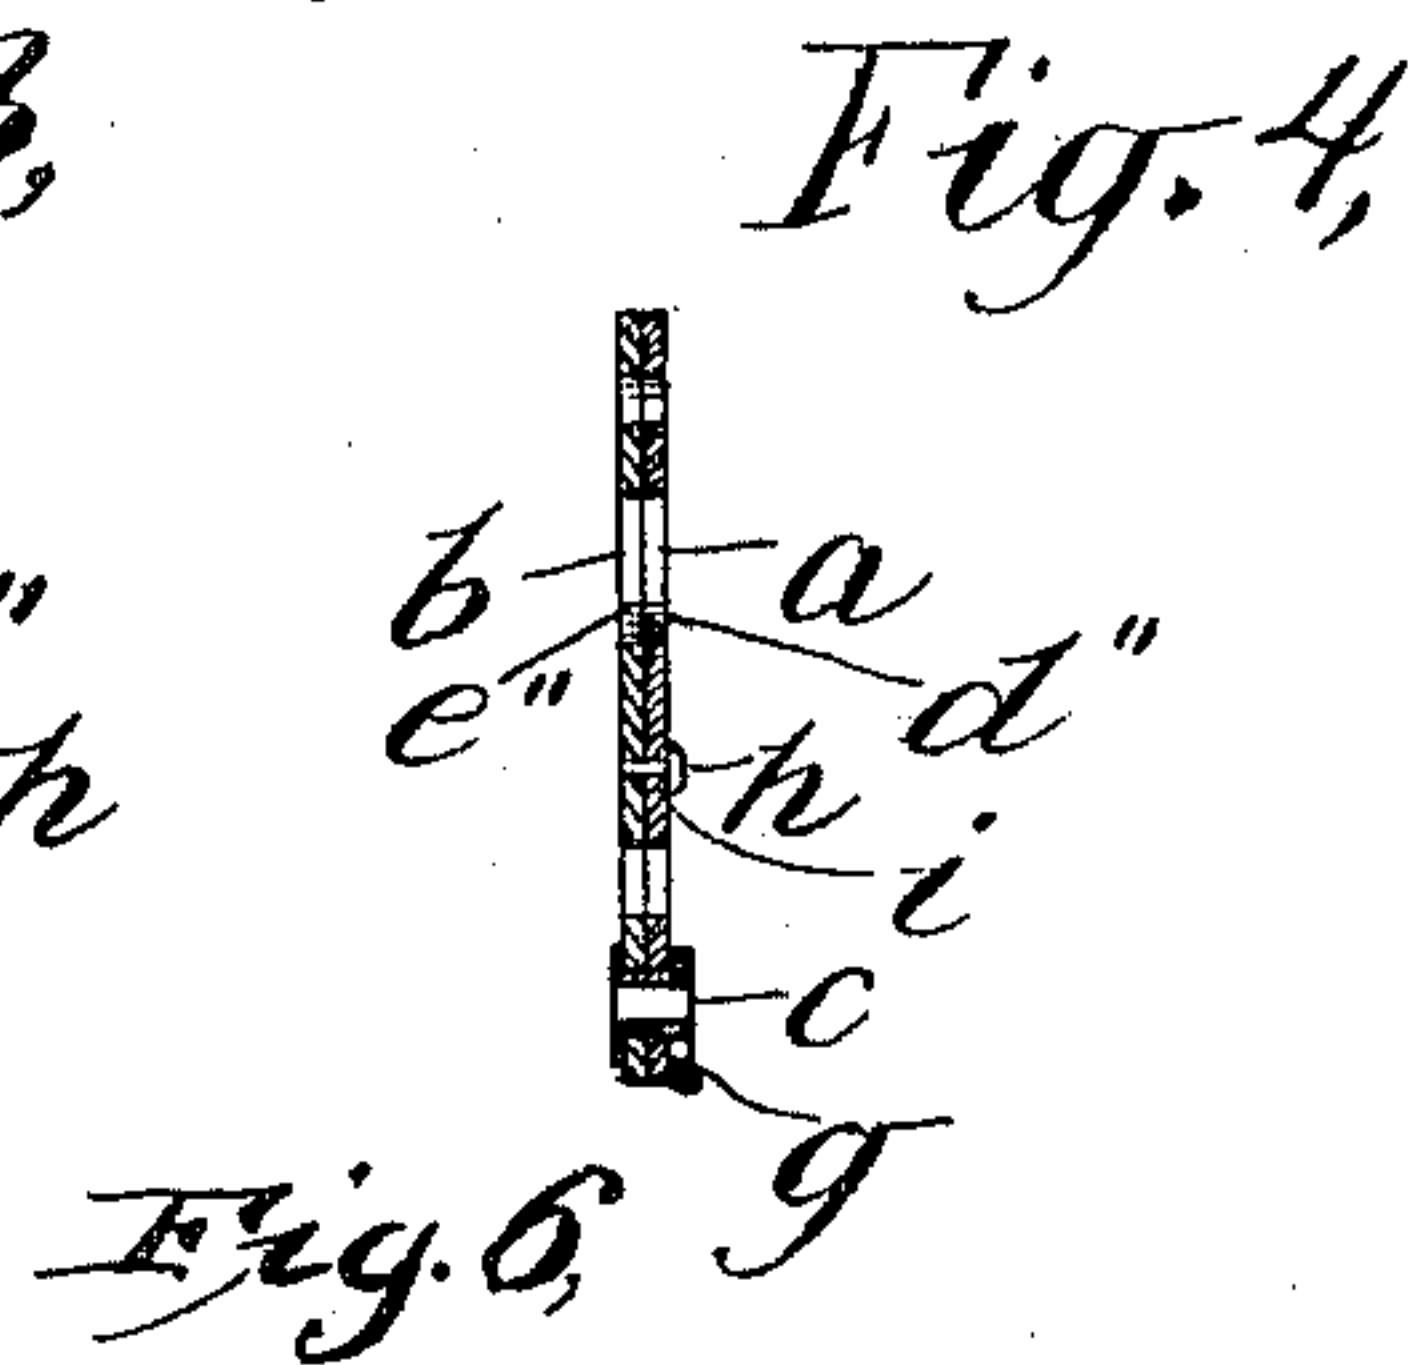 3,
Fig. 4,
"
b
a
e"
d"
h
h
i
c
g
Fig. 6,